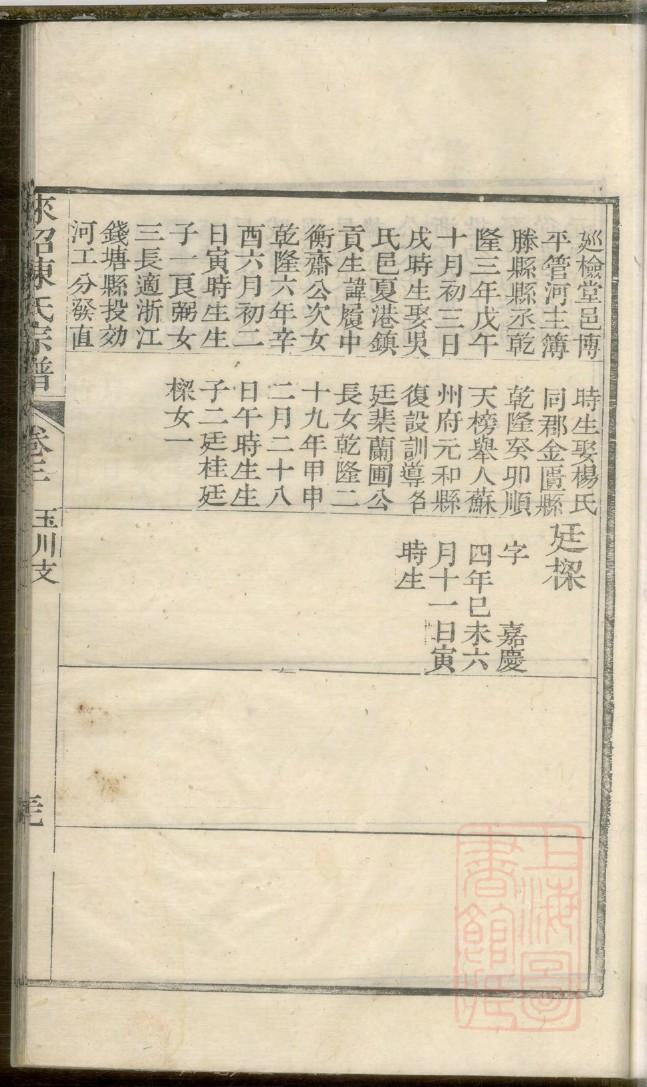 廵檢堂邑博
平管河主簿
滕縣縣丞乾
隆三年戊午
十月初三日
戌時生娶吳
氏邑夏港鎮
貢生諱履中
衡齋公次女
乾隆六年辛
酉六月初二
日寅時生生
子一良弼女
三長適浙江
錢塘縣投効
河工分發直
時生娶楊氏
同郡金匱縣
乾隆癸卯順
天榜舉人蘇
州府元和縣
復設訓導名
廷棐蘭圃公
長女乾隆二
十九年甲申
二月二十八
日午時生生
子二廷桂廷
樑女一
廷樑
字 嘉慶
四年己未六
月十一日寅
時生
陳氏宗譜
卷三
玉川支
上海圖書館藏